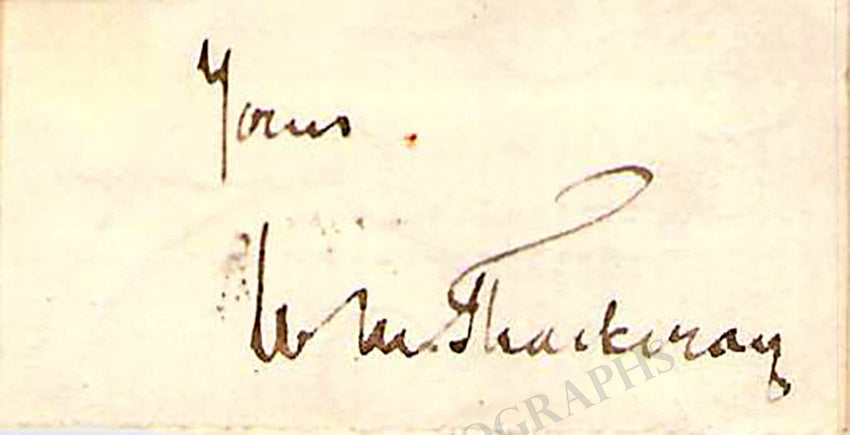 Yours
W M Thackeray
OGRAPHS